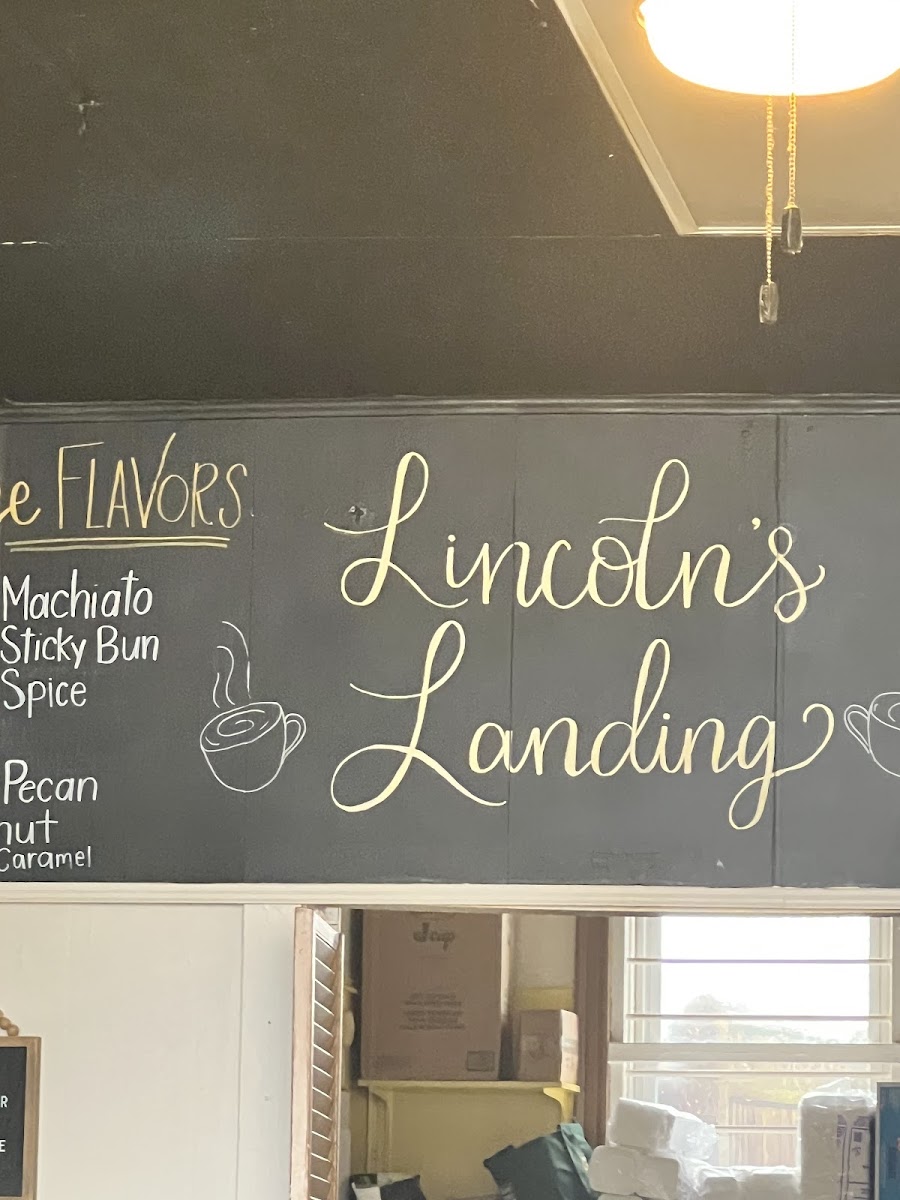 e FLAVORS
Machiato
Sticky Bun
Spice
Pecan
nut
Caramel
Lincoln's
Landing
R
E